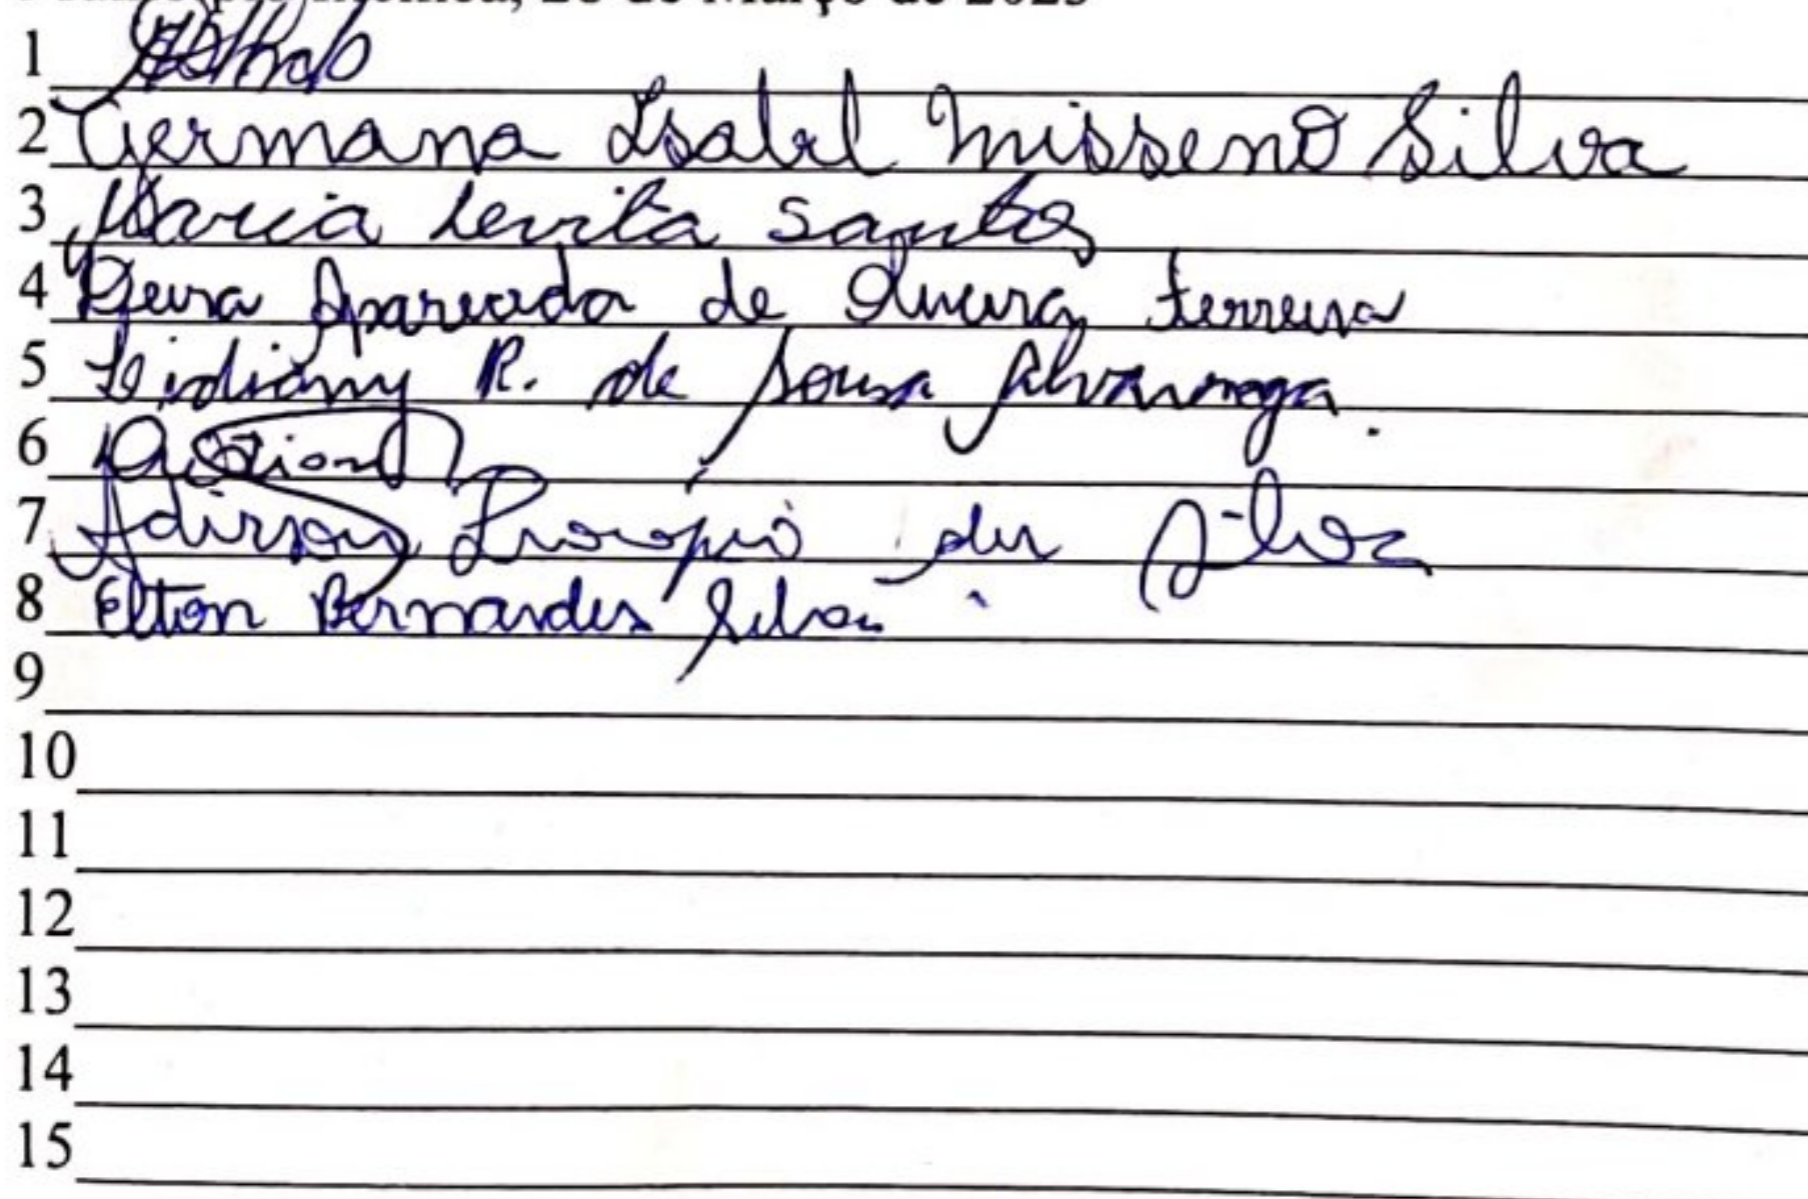 de Março de 2023
1
2 Germana Isabel Misseno Silva
3 Maria Levita Santos
4 Aparecida de Ferreira
5 Lidiany R. de Sousa Alvarenga.
6
7 Adirson Procópio da Silva
8 Elton Bernardes Silva
9
10
11
12
13
14
15